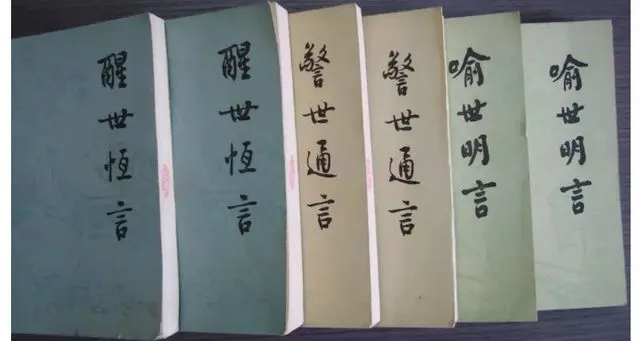 醒世恒言
醒世恒言
警世通言
警世通言
喻世明言
喻世明言